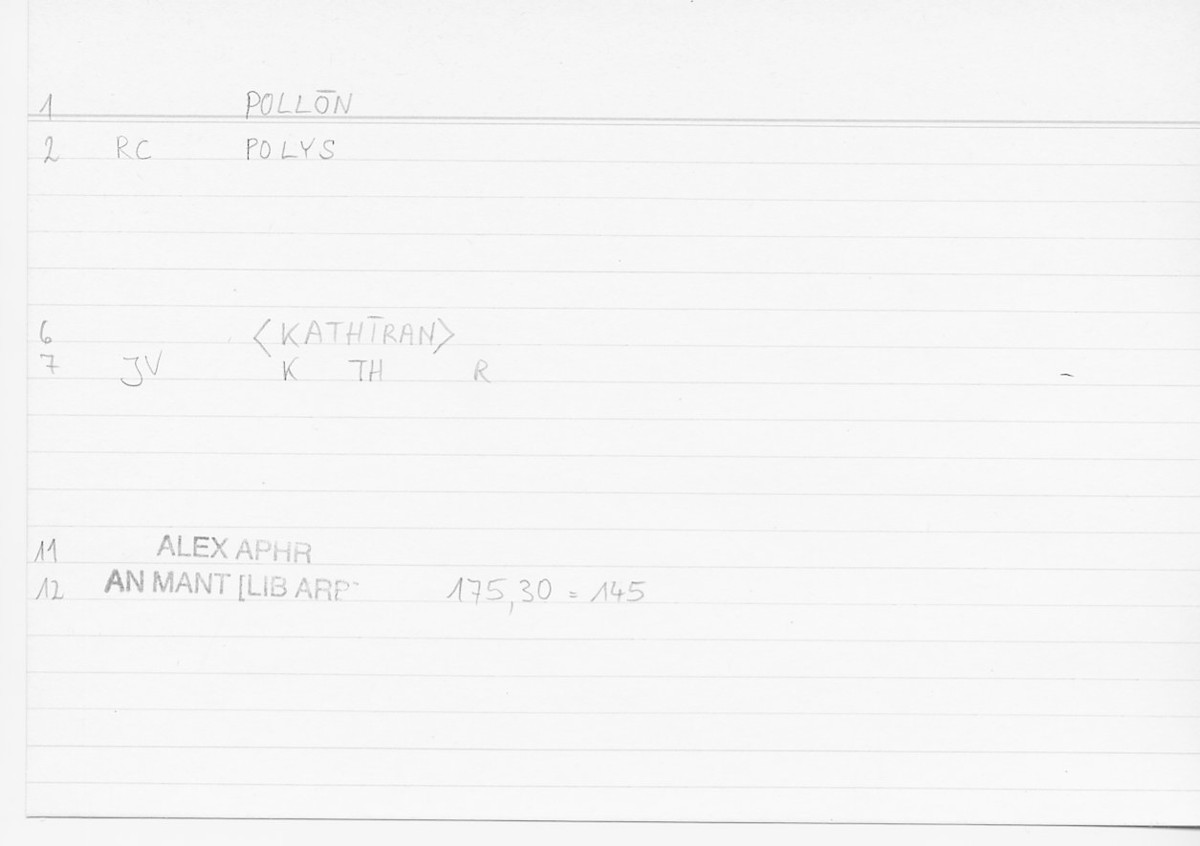 1 POLLŌN
2 RC POLYS
6 〈KATHĪRAN〉
7 JV K TH R -
11 ALEX APHR
12 AN MANT [LIB ARB 175,30 = 145